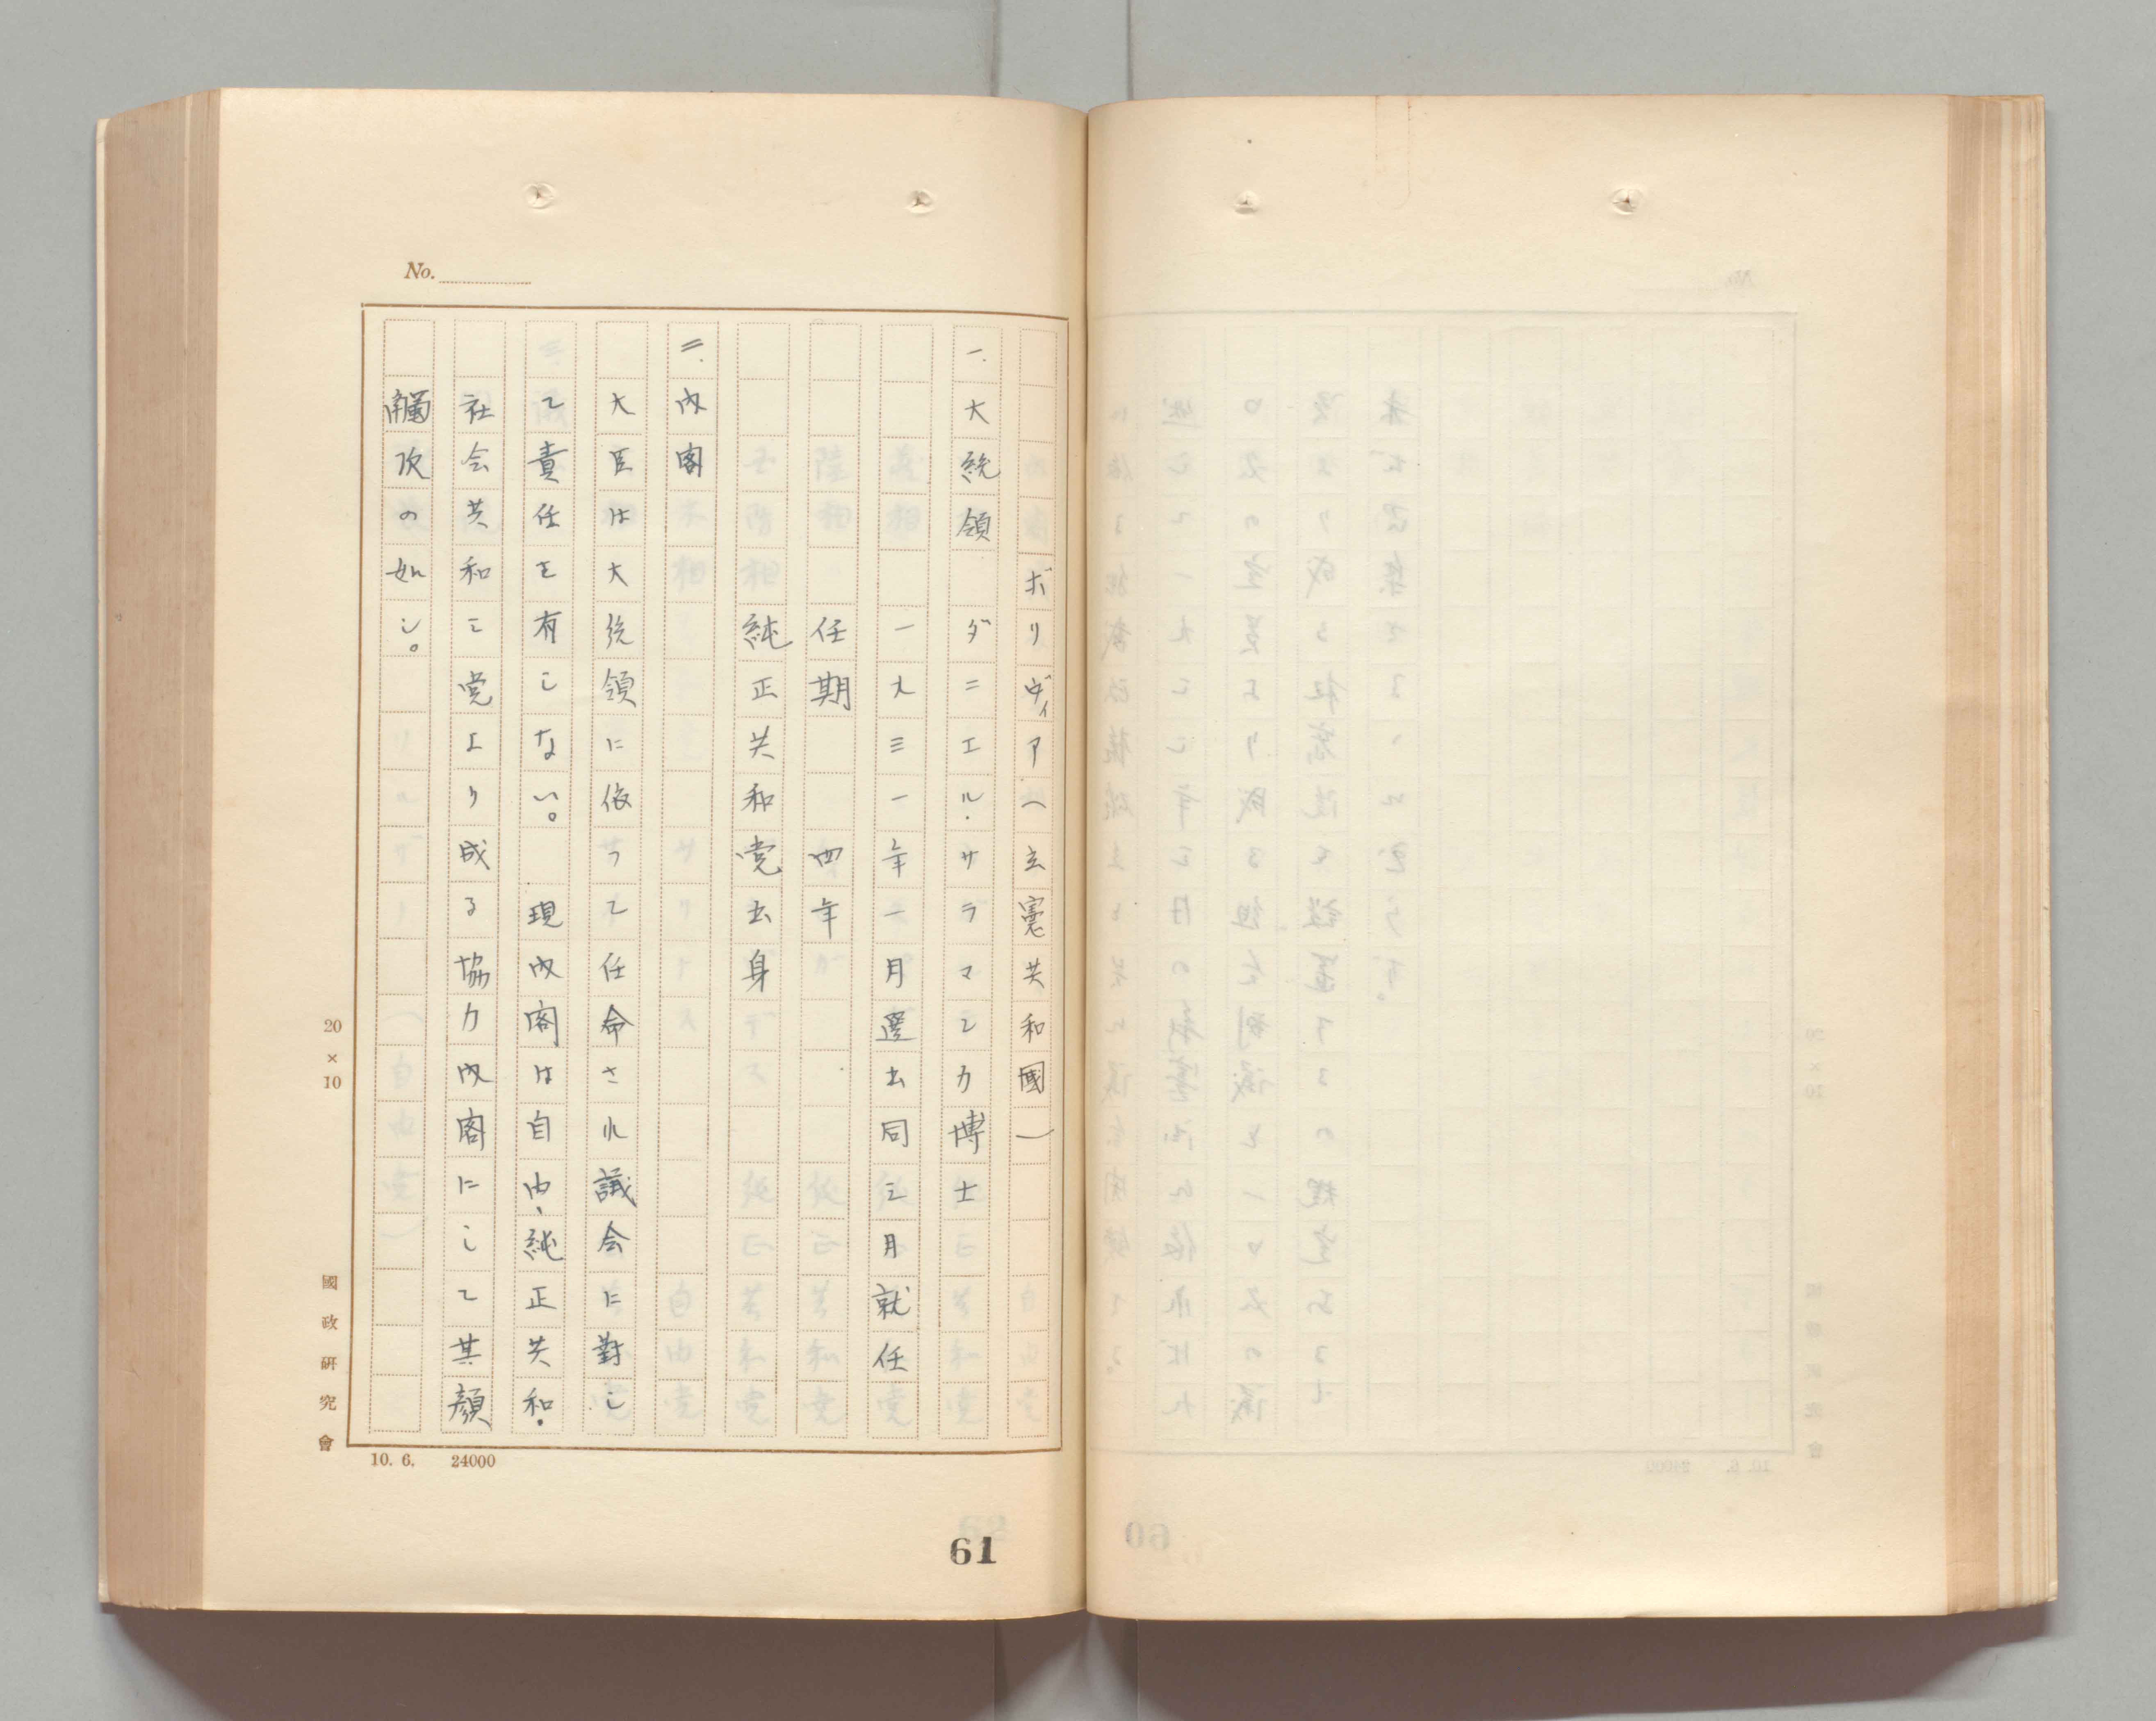 No.
ボリヴィア(立憲共和國)
一.大統領 ダニエル.サラマンカ博士
一九三一年一月選出同三月就任
任期 四年
純正共和党出身
二.内閣
大臣は大統領に依つて任命され議会に對し
て責任を有しない。 現内閣は自由、純正共和.
社会共和三党より成る協力内閣にして其顔
觸次の如し。
20×10
國政研究會
10. 6. 24000
61